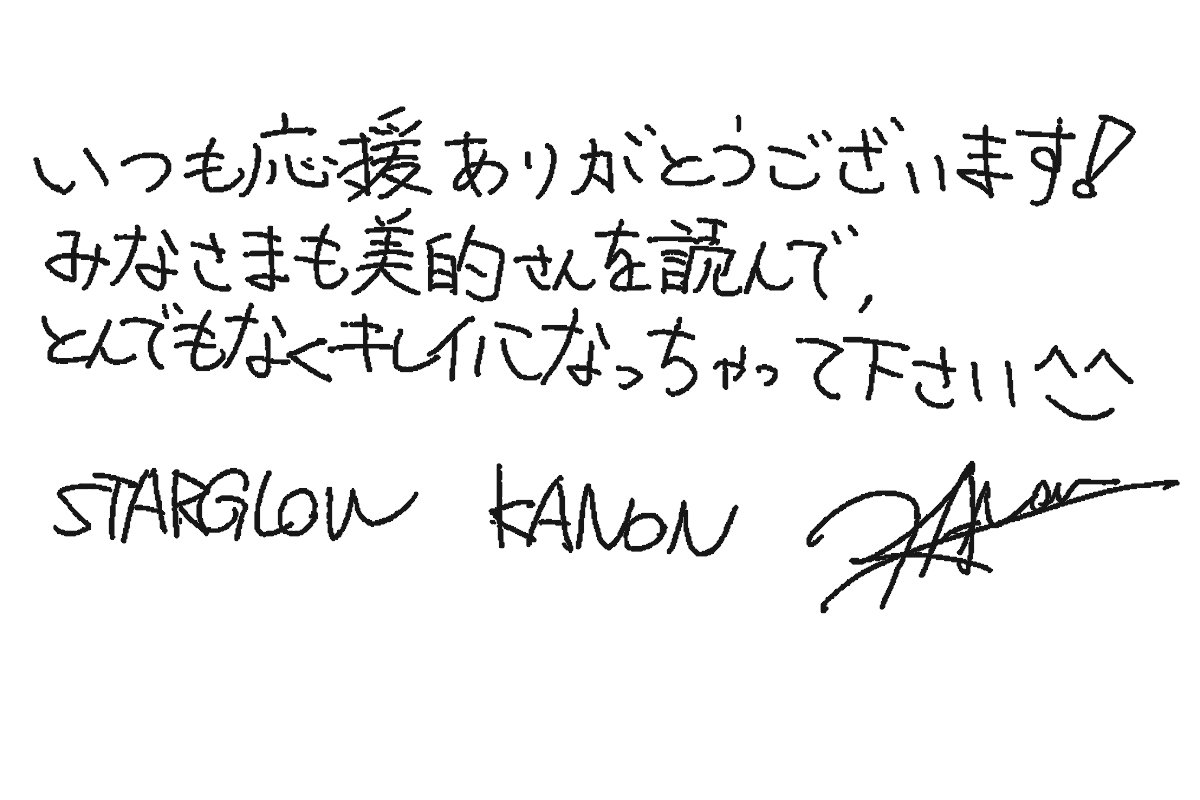 いつも応援ありがとうございます!
みなさまも美的さんを読んで、
とんでもなくキレイになっちゃって下さい^^
STARGLOW KANON KANON